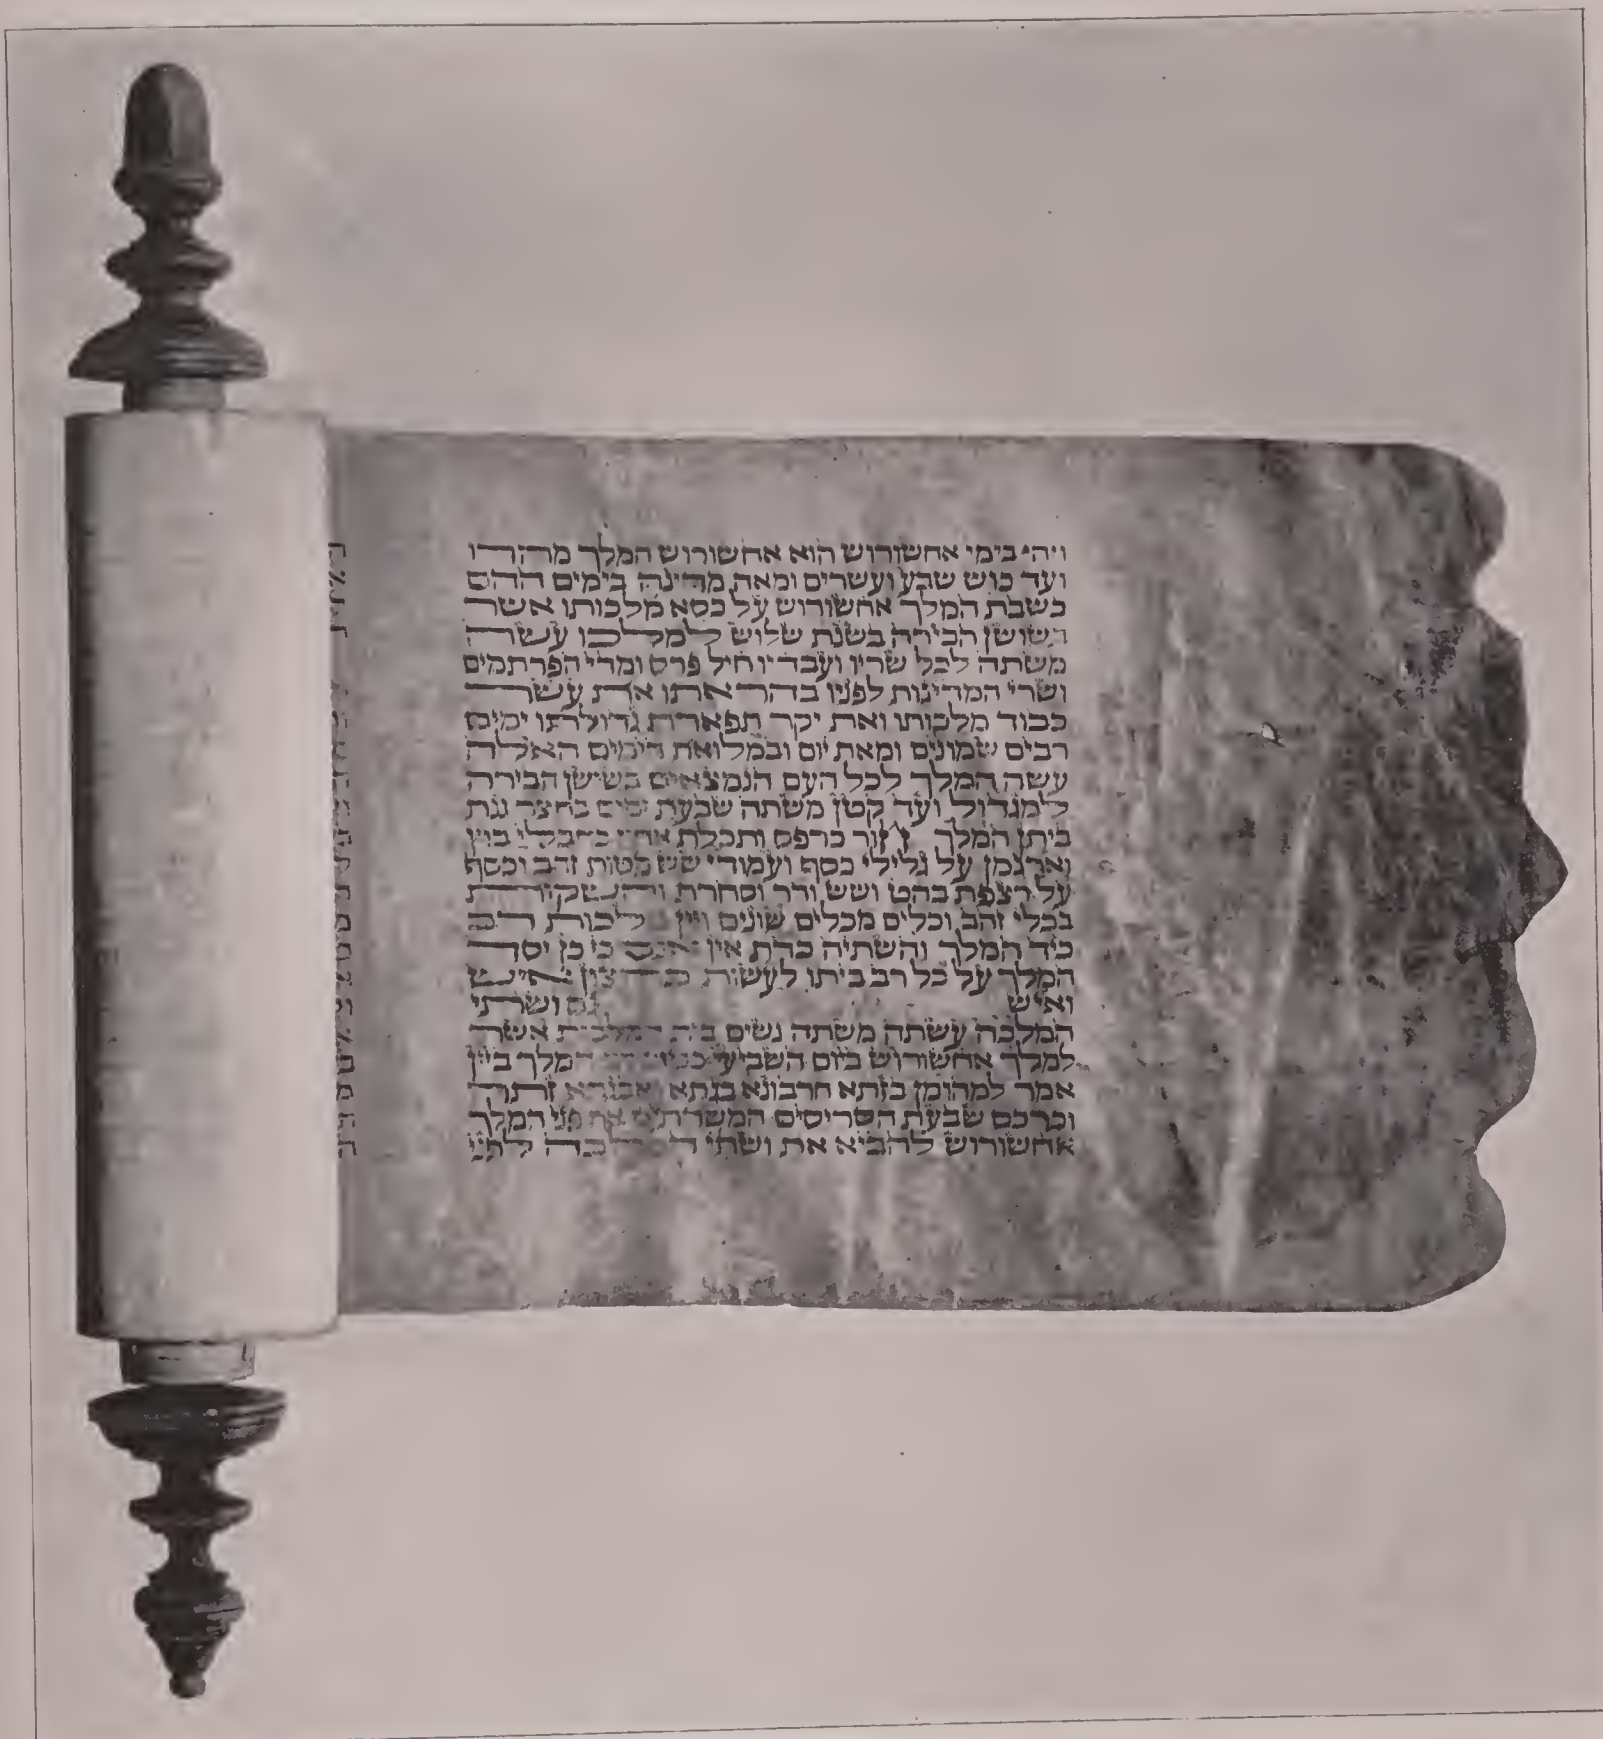 ויהי בימי אחשורוש הוא אחשורוש המלך מהדו
ועד כוש שבע ועשרים ומאה מדינה בימים ההם
כשבת המלך אחשורוש על כסא מלכותו אשר
בשושן הבירה בשנת שלוש למלכו עשה
משתה לכל שריו ועבדיו חיל פרס ומדי הפרתמים
ושרי המדינות לפניו בהראתו את עשר
כבוד מלכותו ואת יקר תפארת גדולתו ימים
רבים שמונים ומאת יום ובמלואת הימים האלה
עשה המלך לכל העם הנמצאים בשושן הבירה
למגדול ועד קטן משתה שבעת ימים בחצר גנת
ביתן המלך חור כרפס ותכלת אחוז בחבלי בוץ
וארגמן על גלילי כסף ועמודי שש מטות זהב וכסף
על רצפת בהט ושש ודר וסחרת והשקות
בכלי זהב וכלים מכלים שונים ויין מלכות רב
כיד המלך והשתיה כדת אין אנס כי כן יסד
המלך על כל רב ביתו לעשות כרצון איש
ואיש גם ושתי
המלכה עשתה משתה נשים בית המלכות אשר
למלך אחשורוש ביום השביעי כטוב לב המלך ביין
אמר למהומן בזתא חרבונא בגתא ואבגתא זתר
וכרכס שבעת הסריסים המשרתים את פני המלך
אחשורוש להביא את ושתי המלכה לפני